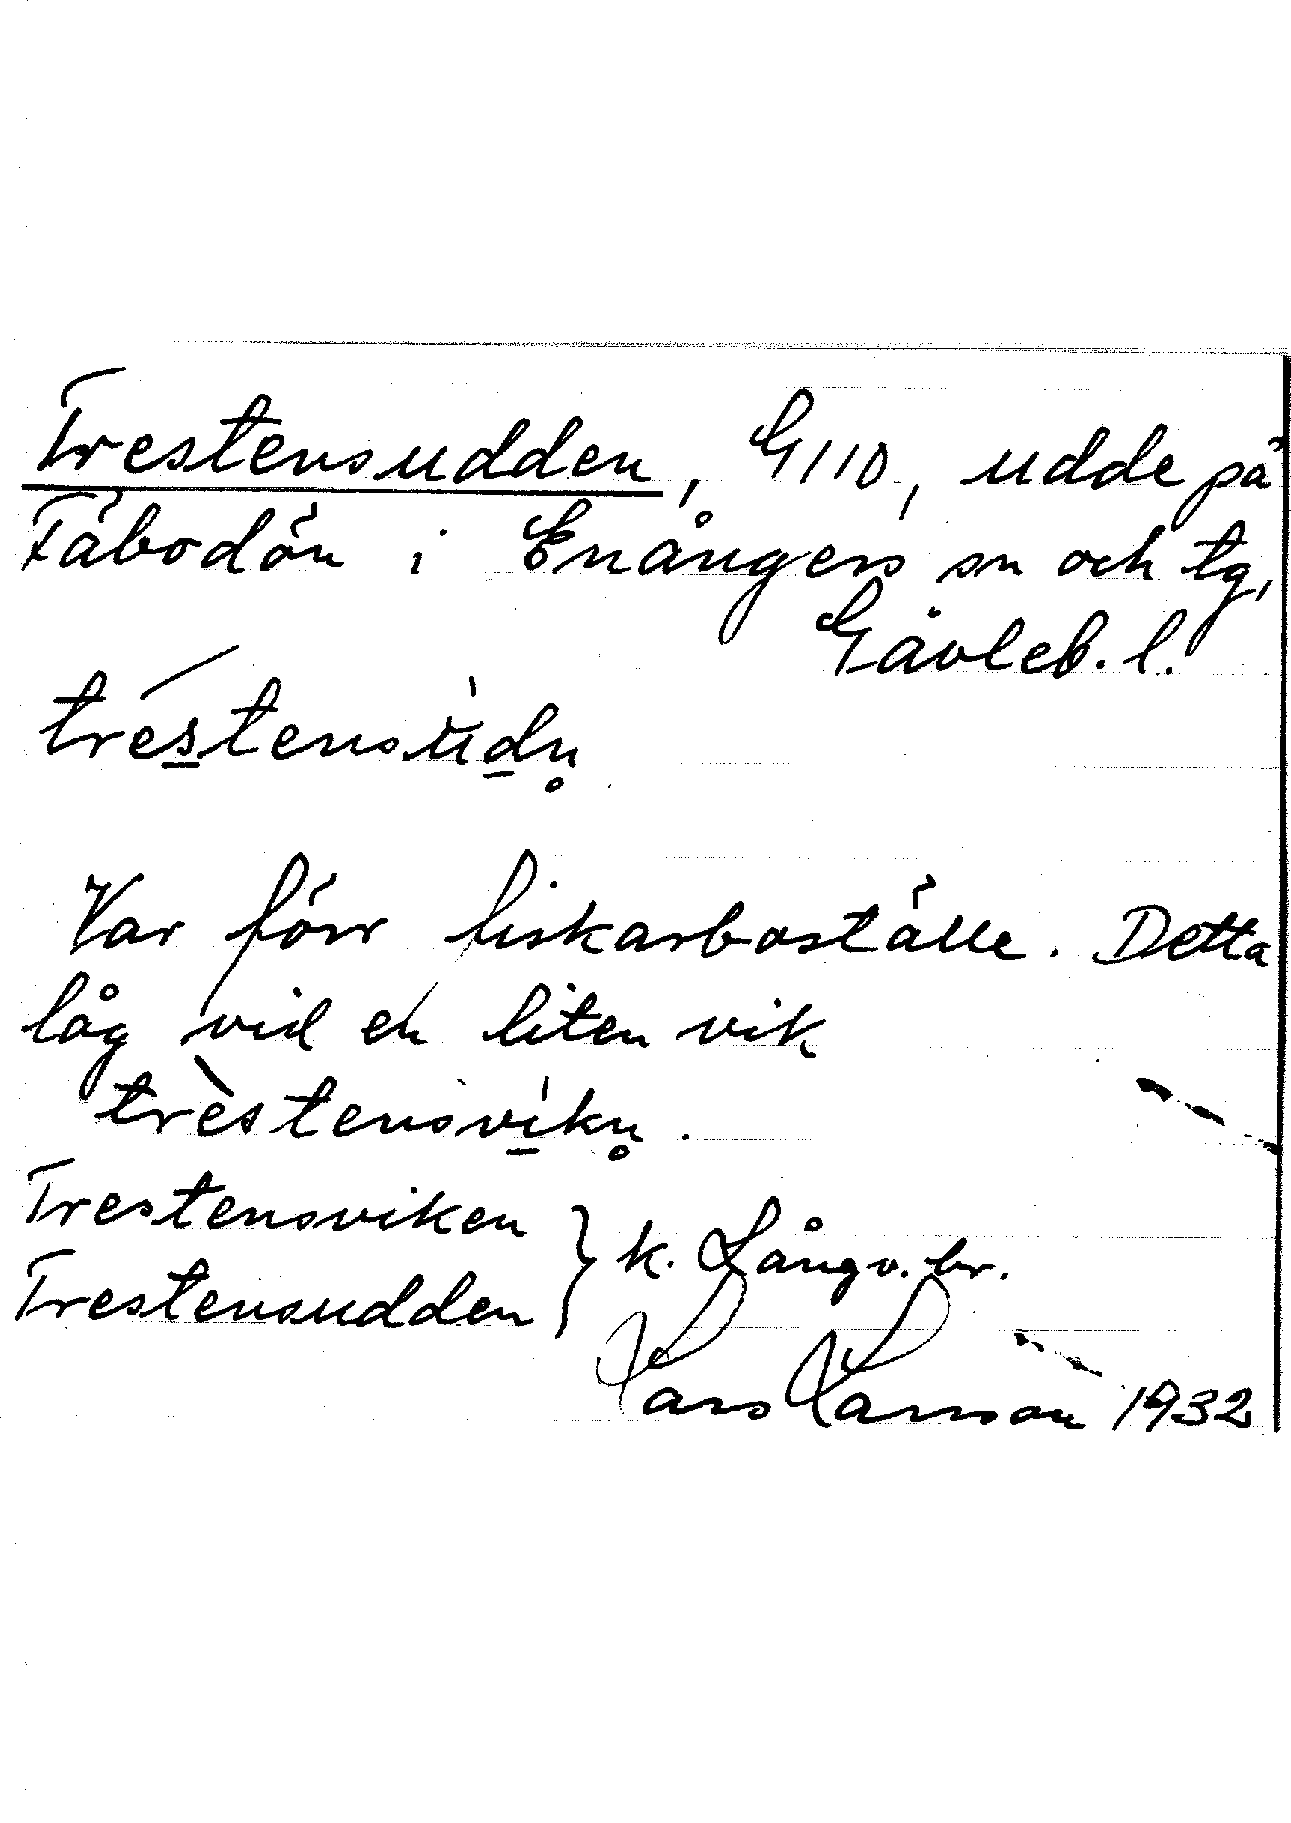 Trestensudden, G110, udde på
Fäbodön i Enångers sn och tg,
Gävleb. l.
tréstensùdn̥
Var förr fiskarboställe. Detta
låg vid en liten vik
trèstensvíkn̥.
Trestensviken
Trestensudden } k. Långv. br.
Lars Larsson 1932